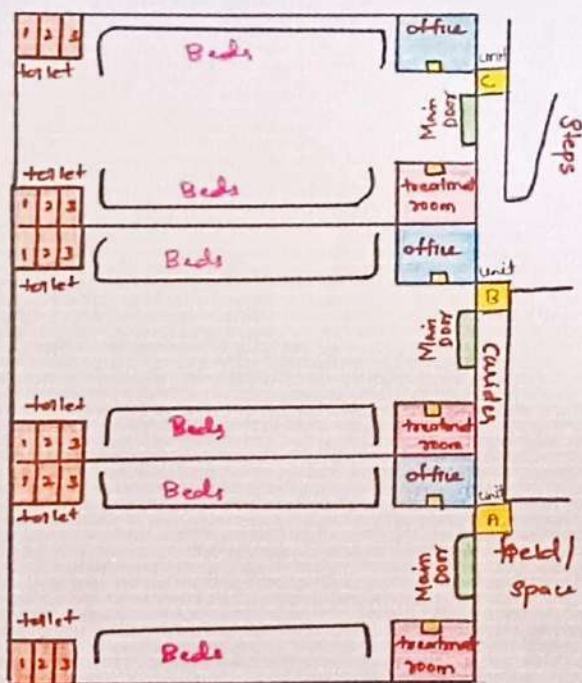 1 2 3
toilet
Beds
office
unit
C
Main
Door
Steps
toilet
1 2 3
Beds
treatmnt
room
1 2 3
toilet
Beds
office
unit
B
Main
Door
Corider
toilet
1 2 3
Beds
treatmnt
room
1 2 3
toilet
Beds
office
unit
A
Main
Door
field/
space
toilet
1 2 3
Beds
treatmnt
room